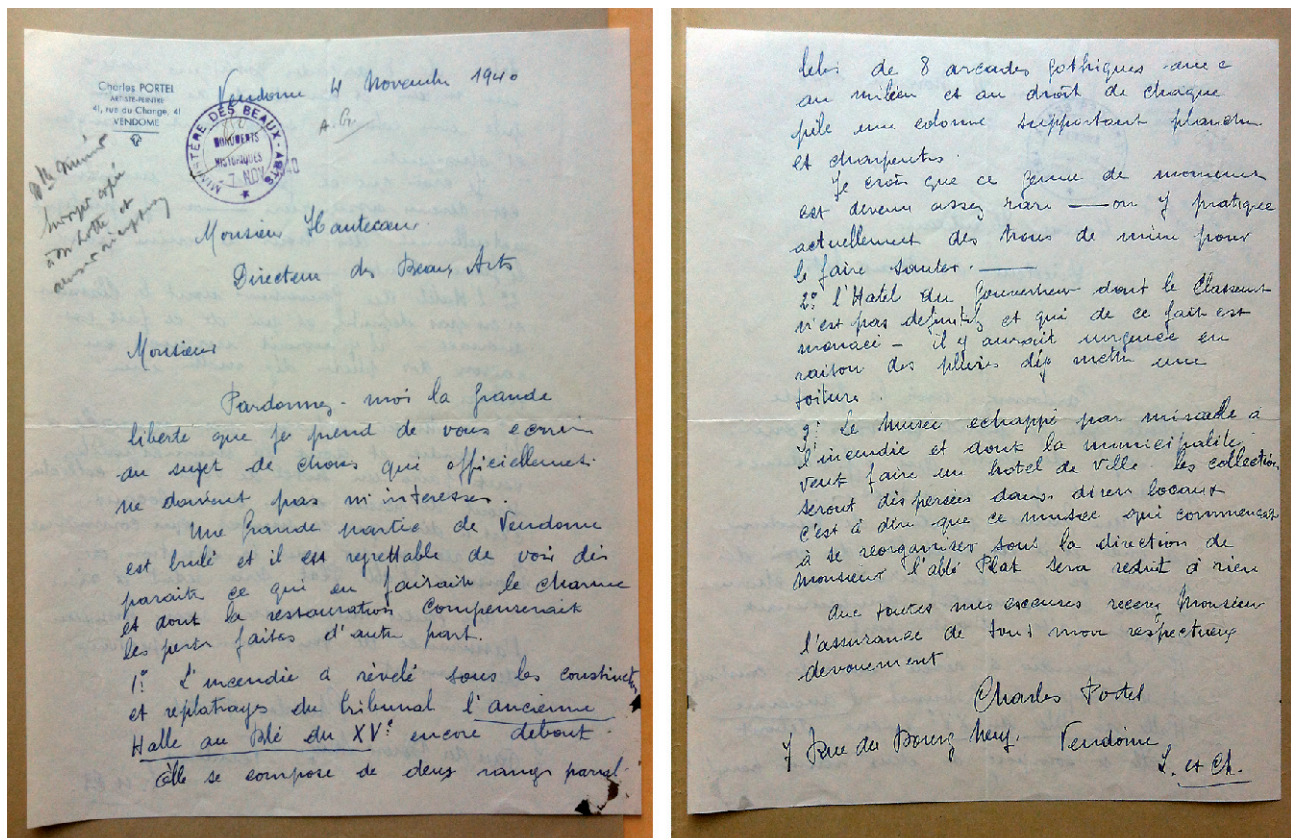 Charles PORTEL
ARTISTE-PEINTRE
41, rue du Change, 41
VENDOME
Vendome 4 Novembre 1940
A. Gr
MINISTÈRE DES BEAUX-ARTS
MONUMENTS
HISTORIQUES
7 NOV 40
envoyer copie
à Mr Lotte et
Monsieur Hautecoeur
Directeur des Beaux Arts
Monsieur
Pardonnez-moi la grande
liberté que je prend de vous ecrire
au sujet de choses qui officiellement
ne doivent pas m'interesser.
Une grande partie de Vendome
est brulé et il est regrettable de voir dis
paraitre ce qui en faisait le charme
et dont la restauration compenserait
les pertes faites d'autre part.
1° L'incendie a révélé sous les constructions
et replatrages du tribunal l'ancienne
Halle au Blé du XVe encore debout.
Elle se compose de deux rangs paral-
leles de 8 arcades gothiques avec
au milieu et au droit de chaque
pile une colonne supportant plancher
et charpentes.
Je crois que ce genre de monument
est devenu assez rare — on y pratique
actuellement des trous de mine pour
le faire sauter. —
2° l'Hotel du Gouverneur dont le Classement
n'est pas definitif et qui de ce fait est
menacé — il y aurait urgence en
raison des pluies d'y mettre une
toiture
3° Le musée echappé par miracle à
l'incendie et dont la municipalité
veut faire un hotel de ville. les collections
seront dispersées dans divers locaux
c'est à dire que ce musée qui commencait
à se reorganiser sous la direction de
Monsieur l'abbé Plat sera reduit à rien
Avec toutes mes excuses recevez Monsieur
l'assurance de tout mon respectueux
devouement
Charles Portel
7 Rue du Bourg Neuf. Vendome
L. et Ch.